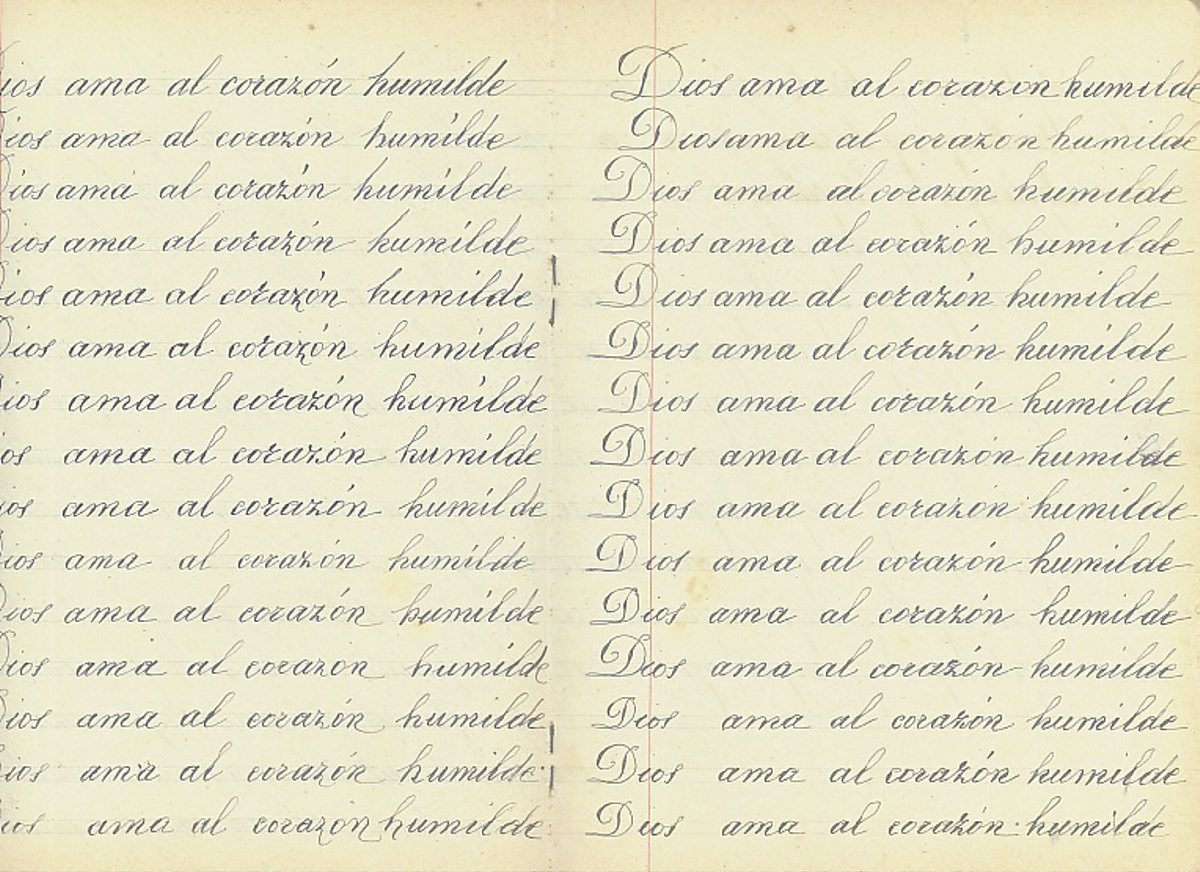 Dios ama al corazón humilde
Dios ama al corazón humilde
Dios ama al corazón humilde
Dios ama al corazón humilde
Dios ama al corazón humilde
Dios ama al corazón humilde
Dios ama al corazón humilde
Dios ama al corazón humilde
Dios ama al corazón humilde
Dios ama al corazón humilde
Dios ama al corazón humilde
Dios ama al corazon humilde
Dios ama al corazón humilde
Dios ama al corazón humilde
Dios ama al corazón humilde
Dios ama al corazon humilde
Dios ama al corazón humilde
Dios ama al corazón humilde
Dios ama al corazón humilde
Dios ama al corazón humilde
Dios ama al corazón humilde
Dios ama al corazón humilde
Dios ama al corazón humilde
Dios ama al corazón humilde
Dios ama al corazón humilde
Dios ama al corazón humilde
Dios ama al corazón humilde
Dios ama al corazón humilde
Dios ama al corazón humilde
Dios ama al corazón humilde